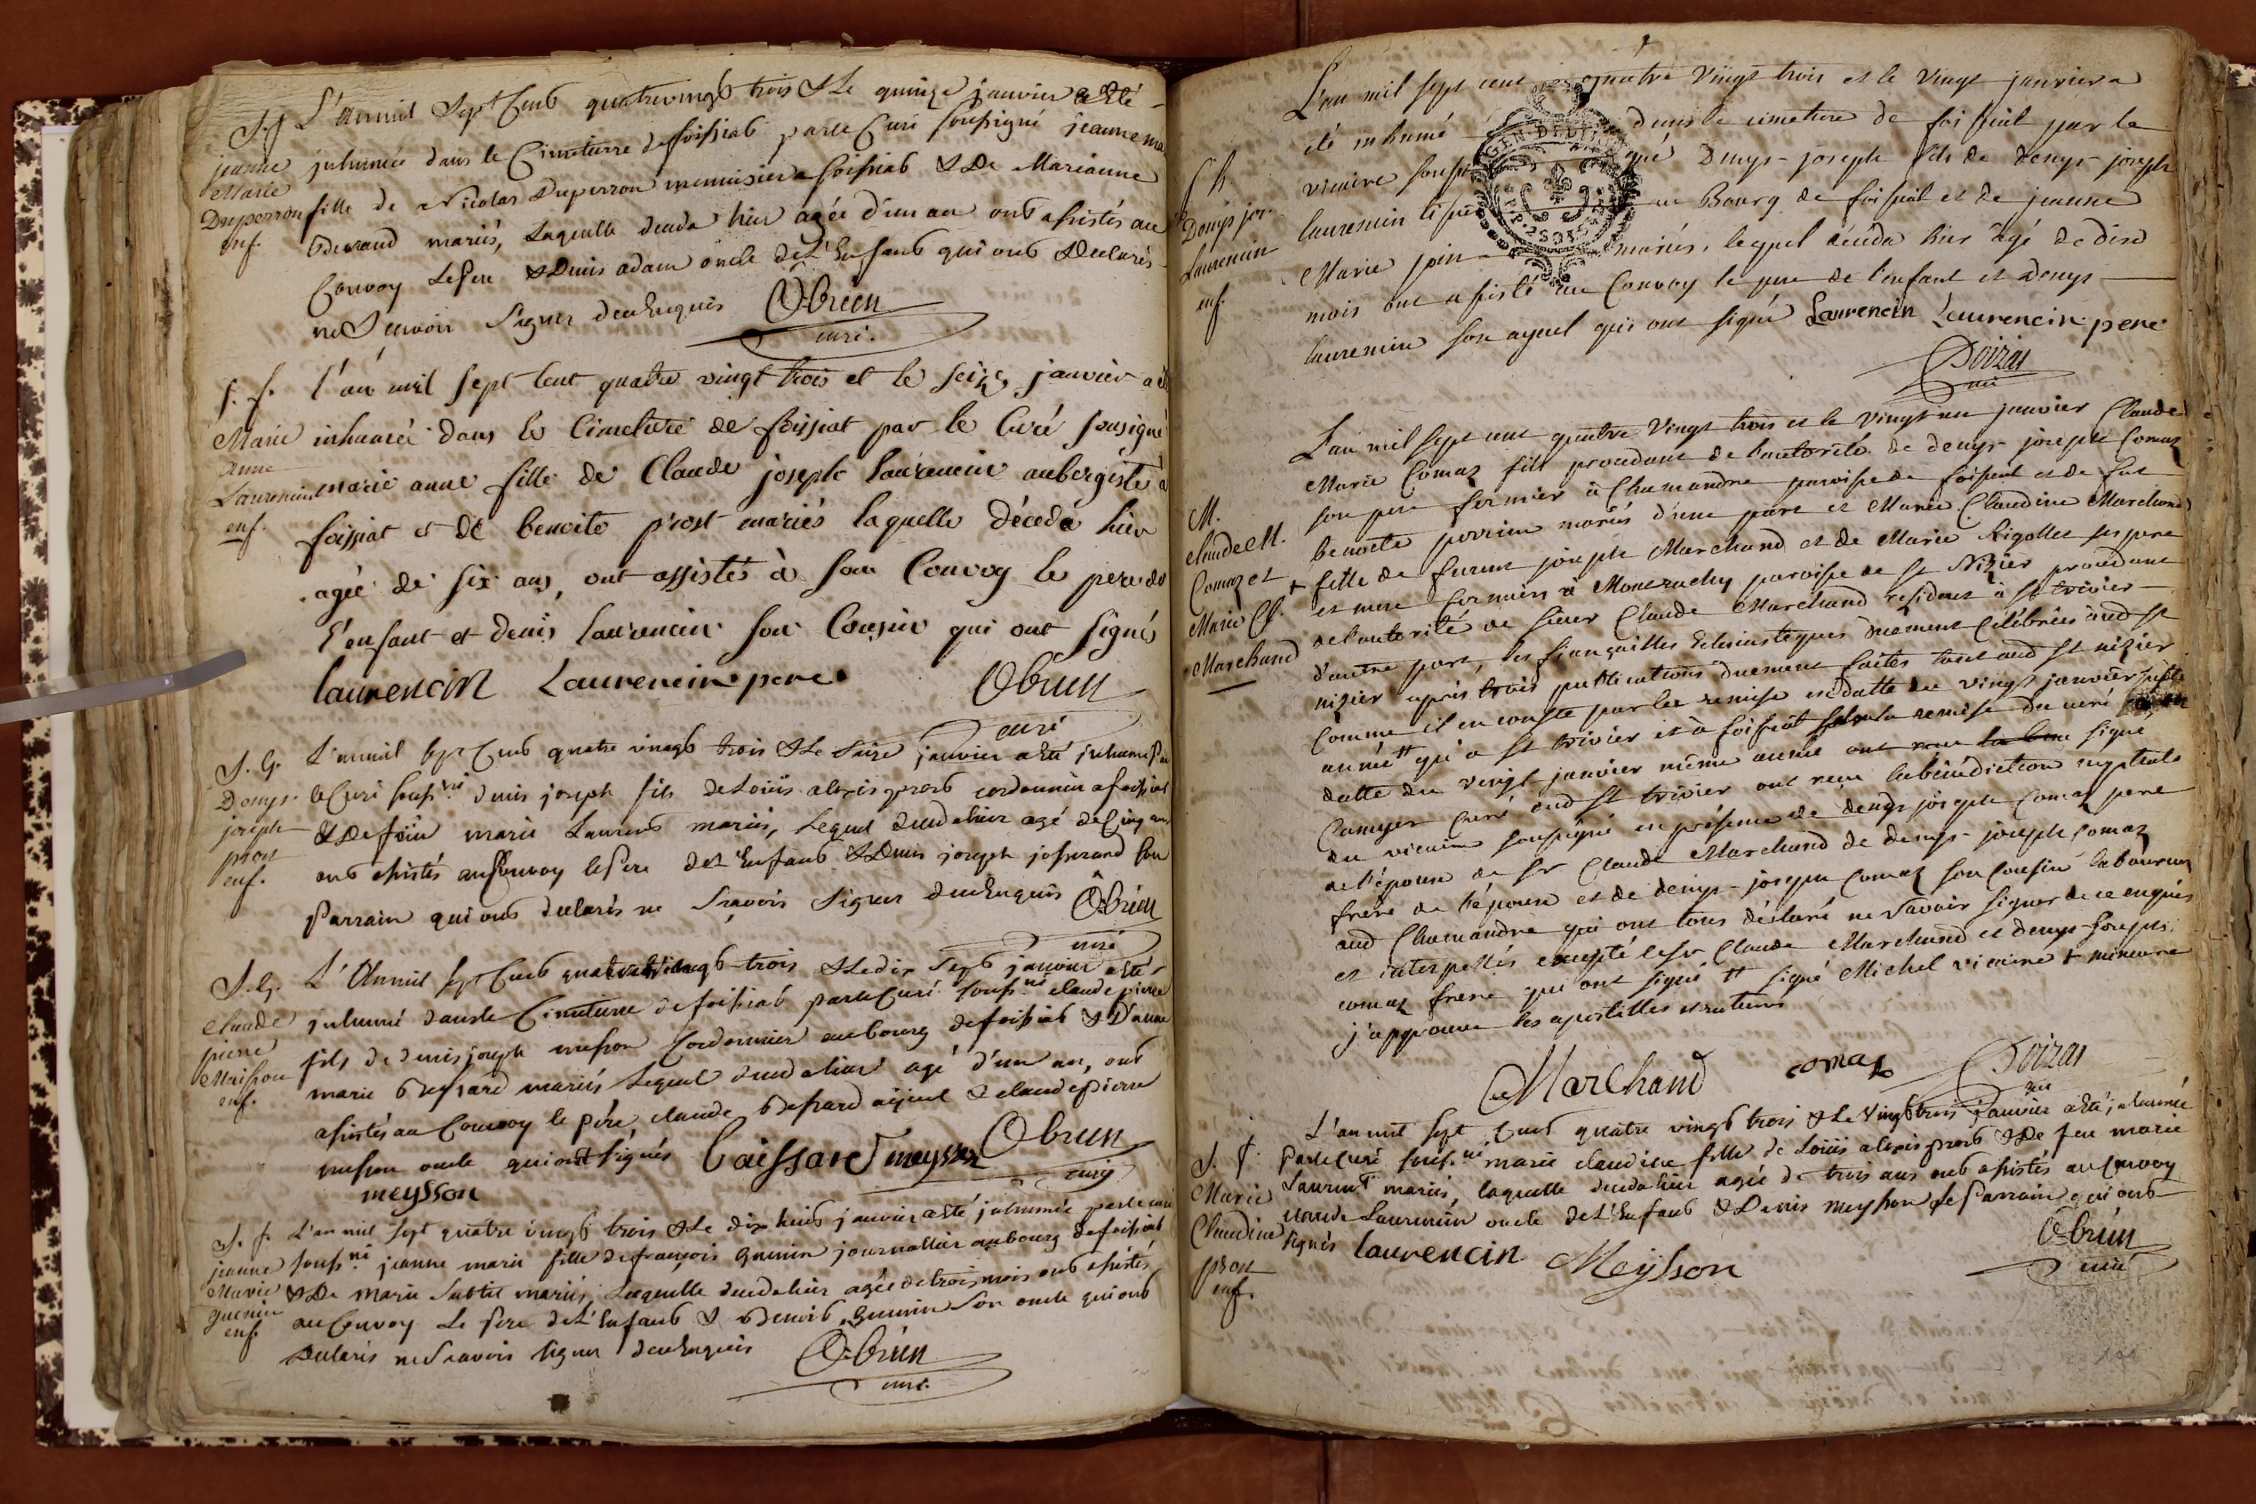 S. f.
jeanne
Marie
Duperron
enf.
L'anmil Sept Cens quatrevingt trois & Le quinze janvier a Eté
inhumée dans le Cimeturre de foissiat parle Curé soussigné jeanne ma
fille de Nicolas Duperron menuisier a foissiat & De Marianne
mariés, Laquelle deceda hier agée d'un an ont assistés au
Convoy Le Pere & Denis adam oncle de L'Enfant qui ont Declarés
ne Scavoir Signer deceEnquis Obrun
curé.
S. f.
Marie
anne
Laurencin
enf.
l'an mil sept cent quatre vingt trois et le seize janvier a été
inhumée dans le Cimetiere de foissiat par le Curé sousigné
marie anne fille de Claude joseph laurencin aubergiste à
foissiat et de benoite prost mariés laquelle décéda hier
agée de six ans, ont assistés à son Convoy le pere de
l'enfant et denis laurencin son Cousin qui ont signés
laurencin Laurencin pere Obrun
curé
S. G.
Denys
joseph
prost
enf.
L'anmil Sept Cens quatre vingt trois & Le Seize janvier a Eté inhumé Par
le Curé souss.né denis joseph fils de Loüis alexis prost cordonnier a foissiat
& De feüe marie Laurent mariés, Lequel deceda hier agé de Cinq ans
ont assistés au Convoy le Pere de L'Enfant & Denis joseph josserand Son
Parrain qui ont declarés ne Sçavoir Signer deceEnquis Obrun
curé
S. G.
Claude
pierre
Maisson
enf.
L'Anmil Sept Cens quatre Vingt trois & Le dix Sept janvier a Eté
inhumé dans le Cimeturre de foissiat parle Curé souss.né claude pierre
fils de denis joseph meisson Cordonnier au bourg de foissiat & D'anne
marie mariés Lequel deceda hier agé d'un an, ont
assistés au Convoy le Père, claude ayeul & claude Pierre
meisson oncle qui ont signés meysson Obrun
meysson curé
S. f.
jeanne
Marie
guenin
enf.
L'an mil Sept quatre vingt trois & Le dix huit janvier a Eté inhumée parle curé
souss.né jeanne marie fille de françois Guenin journallier au bourg de foissiat
& De Marie Subtil mariés, Laquelle deceda hier agée de trois mois ont assistés
au Convoy Le Pere de L'Enfant & Benoit Guenin Son oncle qui ont
Declarés ne Scavoir Signer deceEnquis Obrun
curé.
Denys jos.
Laurencin
enf.
L'an mil sept cent quatre vingt trois et le vingt janvier a
été inhumé dans le cimetiere de foissiat par le
vicaire soussigné Denys-joseph fils de denys-joseph
laurencin au Bourg de foissiat et de jeanne
Marie mariés, lequel décéda hier âgé de dix
mois ont assisté au Convoy le pere de l'enfant et denys
laurencin son ayeul qui ont signé Laurencin Laurencin pere
Poizat
vic
M.
Claude M.
Comaz et
Marie Cl.
Marchand
L'an mil sept cent quatre vingt trois et le vingt un janvier Claude
Marie Comaz fils procedant de l'autorité de denys joseph Comaz
son pere fermier à Chamandre paroisse de foissiat et de fue
benoite mariés d'une part et Marie Claudine Marchand
+ fille de furent joseph Marchand et de Marie Rigollet ses pere
et mere fermiers à Montrachy paroisse de St Nizier procedant
de l'autorité de sieur Claude Marchand résident à St trivier
d'autre part, les fiançailles Eclésiastiques duement Célébrées aud St
nizier après trois publications duement faites tant aud St nizier
Comme il en conste par la remise en datte du vingt janvier
année tt qu'a St trivier et à foissiat selon la remise du curé
datte du vingt janvier même année signé
Curé aud St trivier ont reçu la bénédiction nuptiale
du vicaire soussigné en présence de denys joseph Comaz pere
de l'époux de Sr Claude Marchand de denys-joseph Comaz
frere de l'époux et de denys-joseph Comaz son Cousin laboureur
aud Chamandre qui ont tous déclaré ne savoir signer de ce enquis
et interpellés excepté le Sr Claude Marchand et denys-joseph
comaz frere qui ont signé tt signé Michel vicaire + mineure
j'approuve les apostilles et ratures
Marchand comaz Poizat
vic
S. f.
Marie
Claudine
prost
enf.
L'an mil sept Cens quatre vingt trois & Le vingt trois janvier a Eté inhumée
Parle Curé souss.né marie claudine fille de Loüis alexis prost & De feu marie
Laurent mariés, laquelle deceda hier agée de trois ans ont assistés au Convoy
claude Laurencin oncle de L'Enfant & Denis meysson Le Parrain qui ont
signés laurencin Meÿsson Obrun
curé